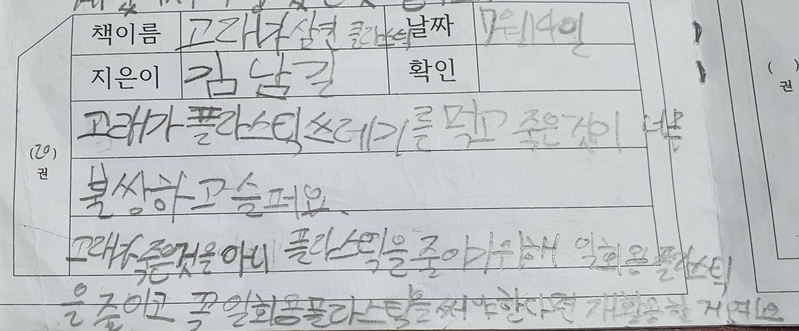 책이름 고래가 삼킨 플라스틱 날짜 7월14일
지은이 김남길 확인
(20) 권
( ) 권
고래가 플라스틱 쓰레기를 먹고 죽은것이 너무
불쌍하고 슬퍼요.
고래가 죽은것을 아니 플라스틱을 줄이기위해 일회용 플라스틱
을 줄이고 꼭 일회용플라스틱을 써야한다면 재활용할 거예요